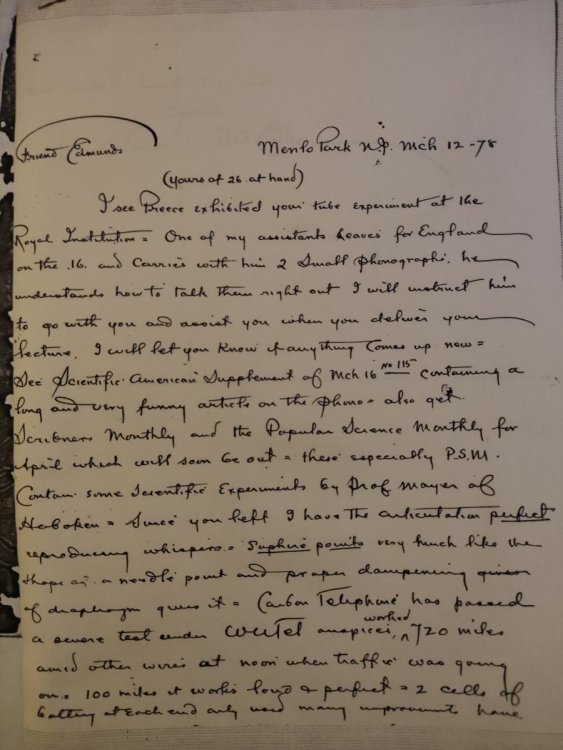 Friend Edmunds
Menlo Park N.J. Mch 12 -78
(yours of 26 at hand)
I see Preece exhibited your tube experiment at the
Royal Institution = One of my assistants leaves for England
on the .16. and Carries with him 2 Small phonographs. he
understands how to talk them right out I will instruct him
to go with you and assist you when you deliver your
lecture. I will let you Know if anything Comes up new =
See Scientific American Supplement of Mch 16 No 115 Containing a
long and very funny article on the phono = also get
Scribners Monthly and the Popular Science Monthly for
April which will soon be out = these especially P.S.M.
Contain some Scientific Experiments by Prof Mayer of
Hoboken = Since you left I have the articulation perfect
reproducing whispers = Saphire points very much like the
shape a needle point and proper dampening given
of diaphragm gives it = Carbon Telephone has passed
a severe test under WUTel auspices, worked 720 miles
amid other wires at noon when traffic was going
on. 100 miles it works loud & perfect = 2 cells of
battery at Each end only used many improvements have